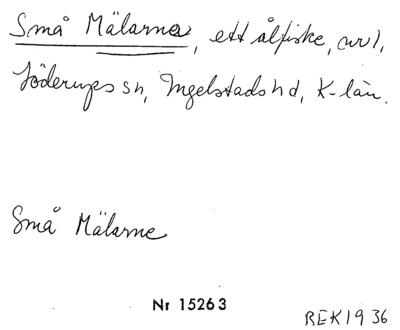 Små Mälarne, ett ålfiske, nr 1,
Löderups sn, Ingelstads hd, K-län.
Små Mälarne
Nr 15263
REK 1936